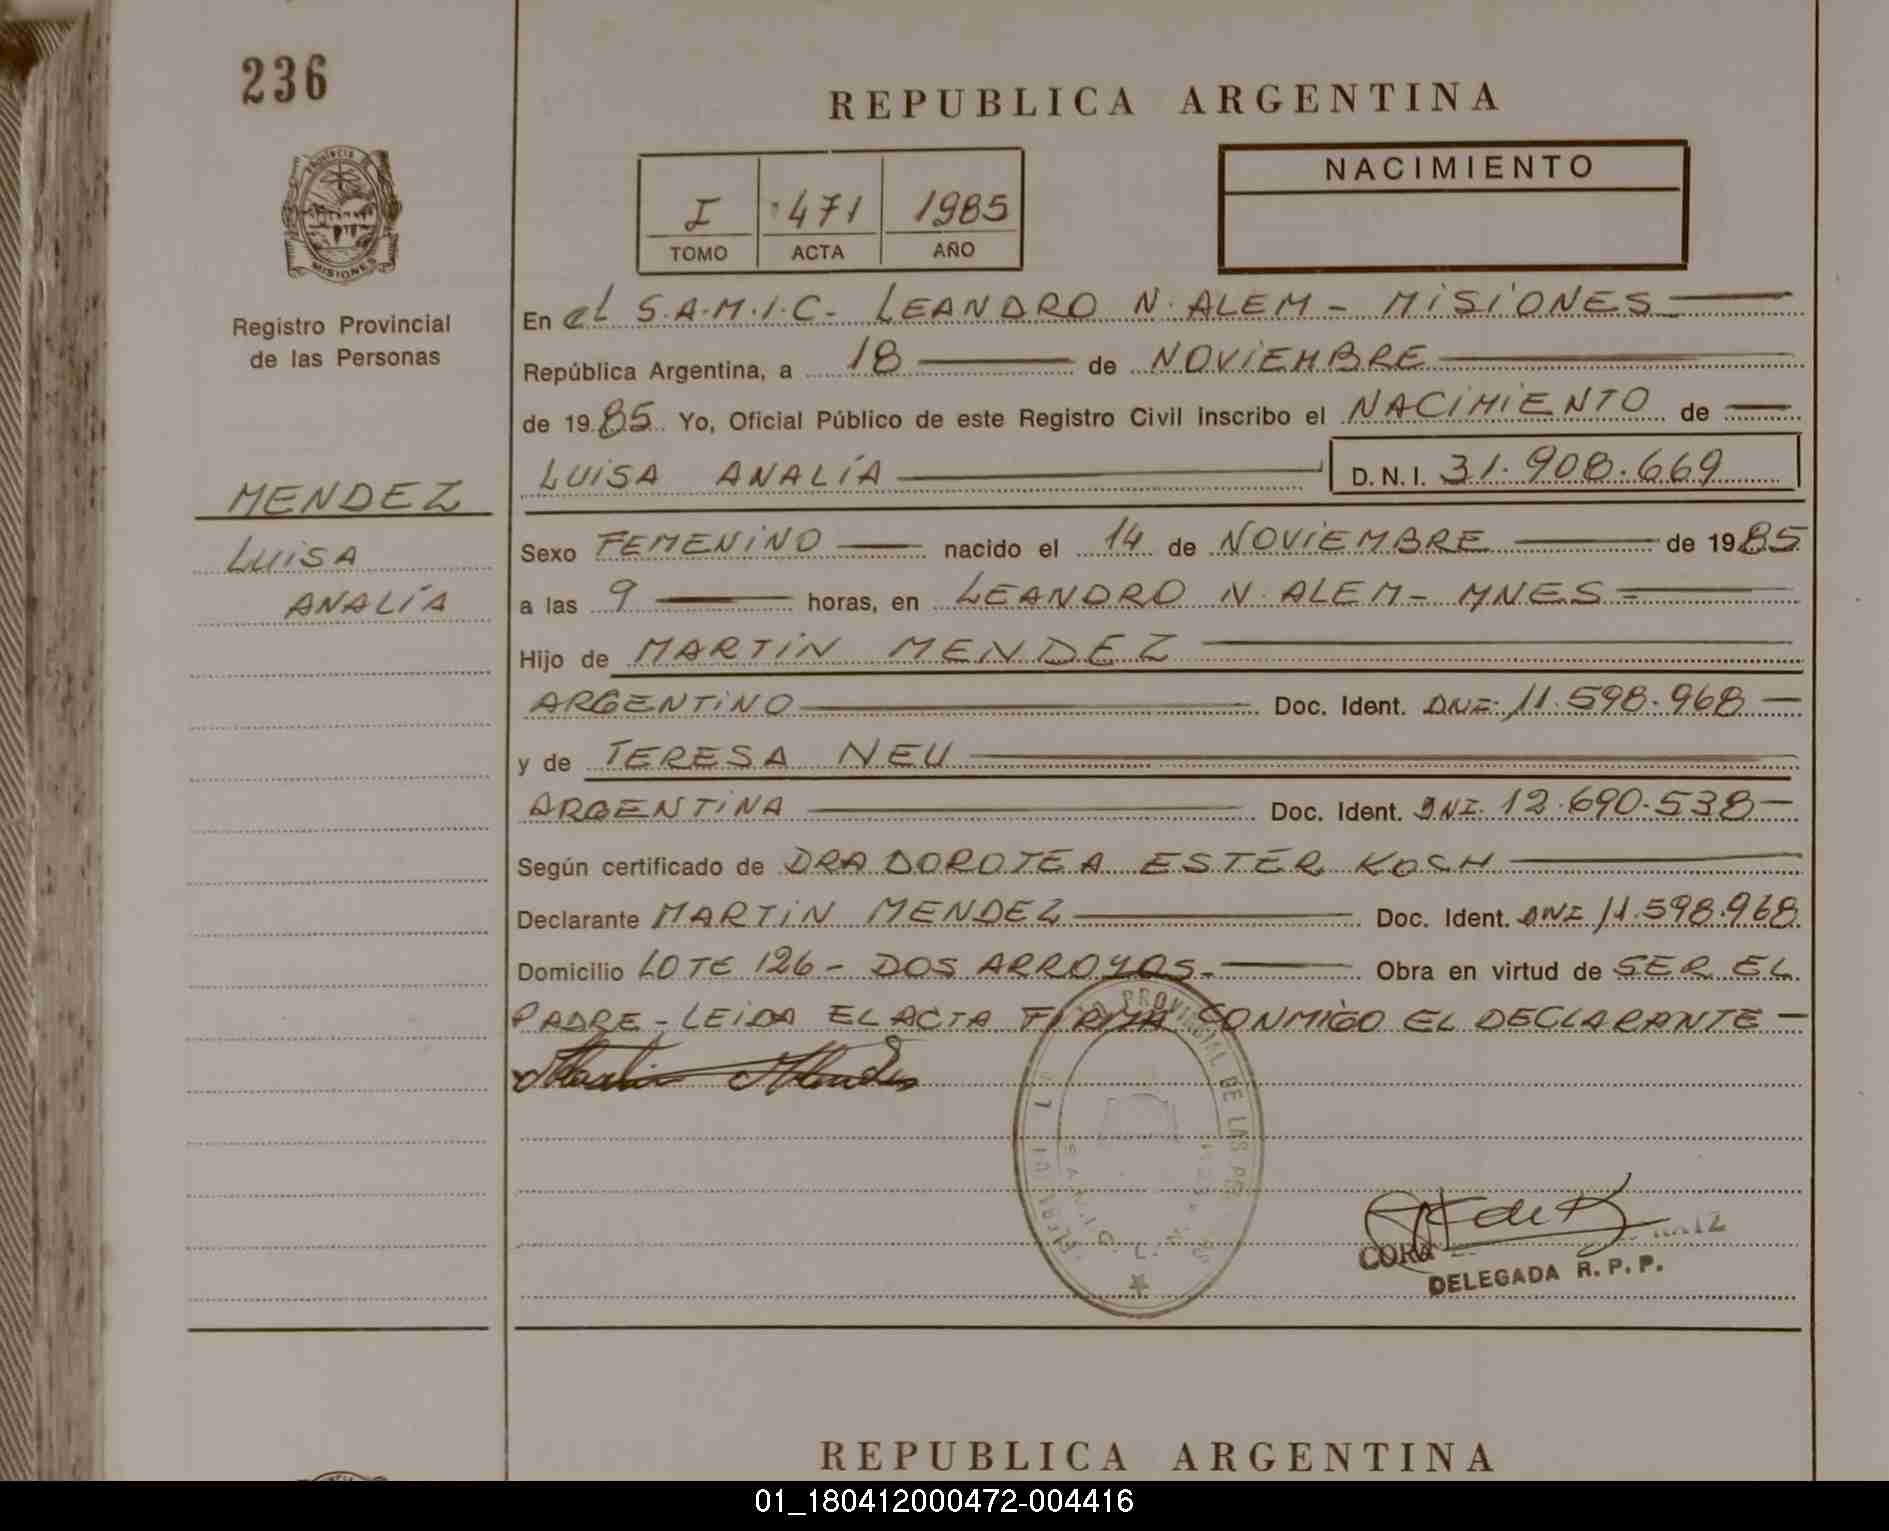 236
REPUBLICA ARGENTINA
NACIMIENTO
I 471 1985
TOMO ACTA AÑO
Provincia de
MISIONES
Registro Provincial
de las Personas
En el S.A.M.I.C. LEANDRO N. ALEM - MISIONES
República Argentina, a 18 de NOVIEMBRE
de 1985 Yo, Oficial Público de este Registro Civil inscribo el NACIMIENTO de
LUISA ANALÍA D.N.I. 31.908.669
MENDEZ
LUISA
ANALÍA
Sexo FEMENINO nacido el 14 de NOVIEMBRE de 1985
a las 9 horas, en LEANDRO N. ALEM - MNES
Hijo de MARTIN MENDEZ
ARGENTINO Doc. Ident. DNI. 11.598.968
y de TERESA NEU
ARGENTINA Doc. Ident. DNI. 12.690.538
Según certificado de DRA DOROTEA ESTER KOSH
Declarante MARTIN MENDEZ Doc. Ident. DNI 11.598.968
Domicilio LOTE 126 - DOS ARROYOS - Obra en virtud de SER EL
PADRE - LEIDA EL ACTA FIRMA CONMIGO EL DECLARANTE
Martin Mendez
PROVINCIAL DE LAS
CORA
DELEGADA R.P.P.
REPUBLICA ARGENTINA
01_180412000472-004416